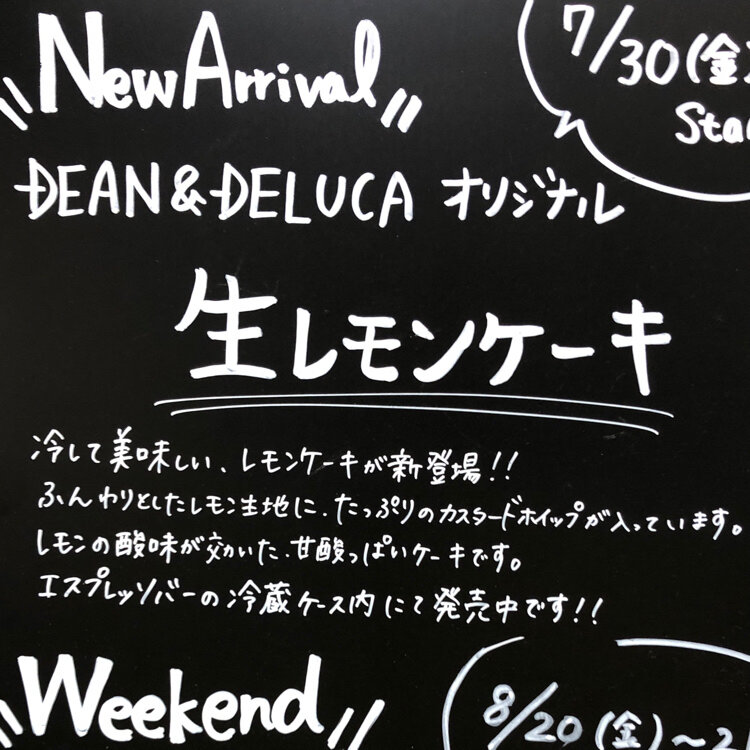 New Arrival
7/30(金)
DEAN & DELUCA オリジナル
生レモンケーキ
冷して美味しい、レモンケーキが新登場!!
ふんわりとしたレモン生地に、たっぷりのカスタードホイップが入っています。
レモンの酸味が効いた、甘酸っぱいケーキです。
エスプレッソバーの冷蔵ケース内にて発売中です!!
Weekend
8/20(金)〜2